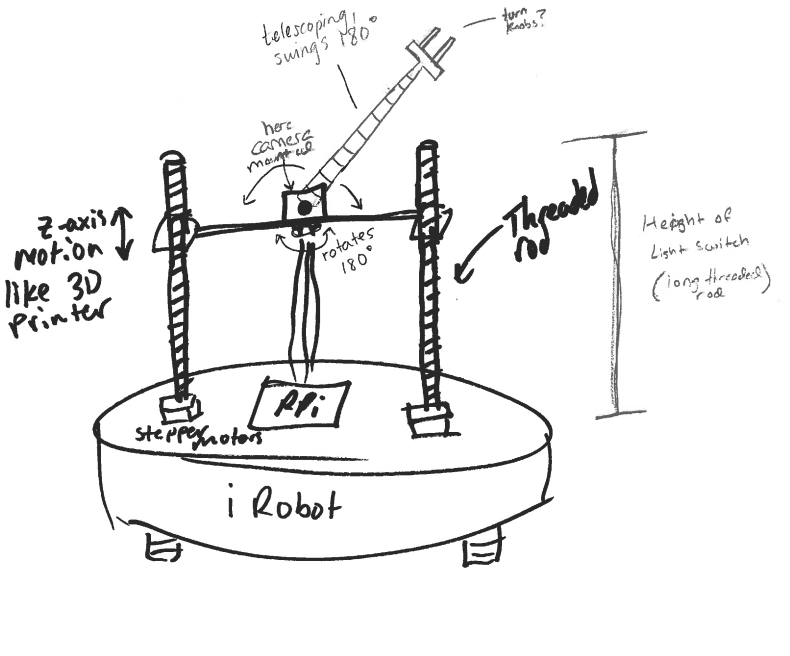 telescoping,
swings 180°
turn
knobs?
here
camera
mounted
z-axis
motion
like 3D
printer
rotates
180°
Threaded
rod
Height of
Light switch
(long threaded
rod)
RPi
stepper motors
iRobot